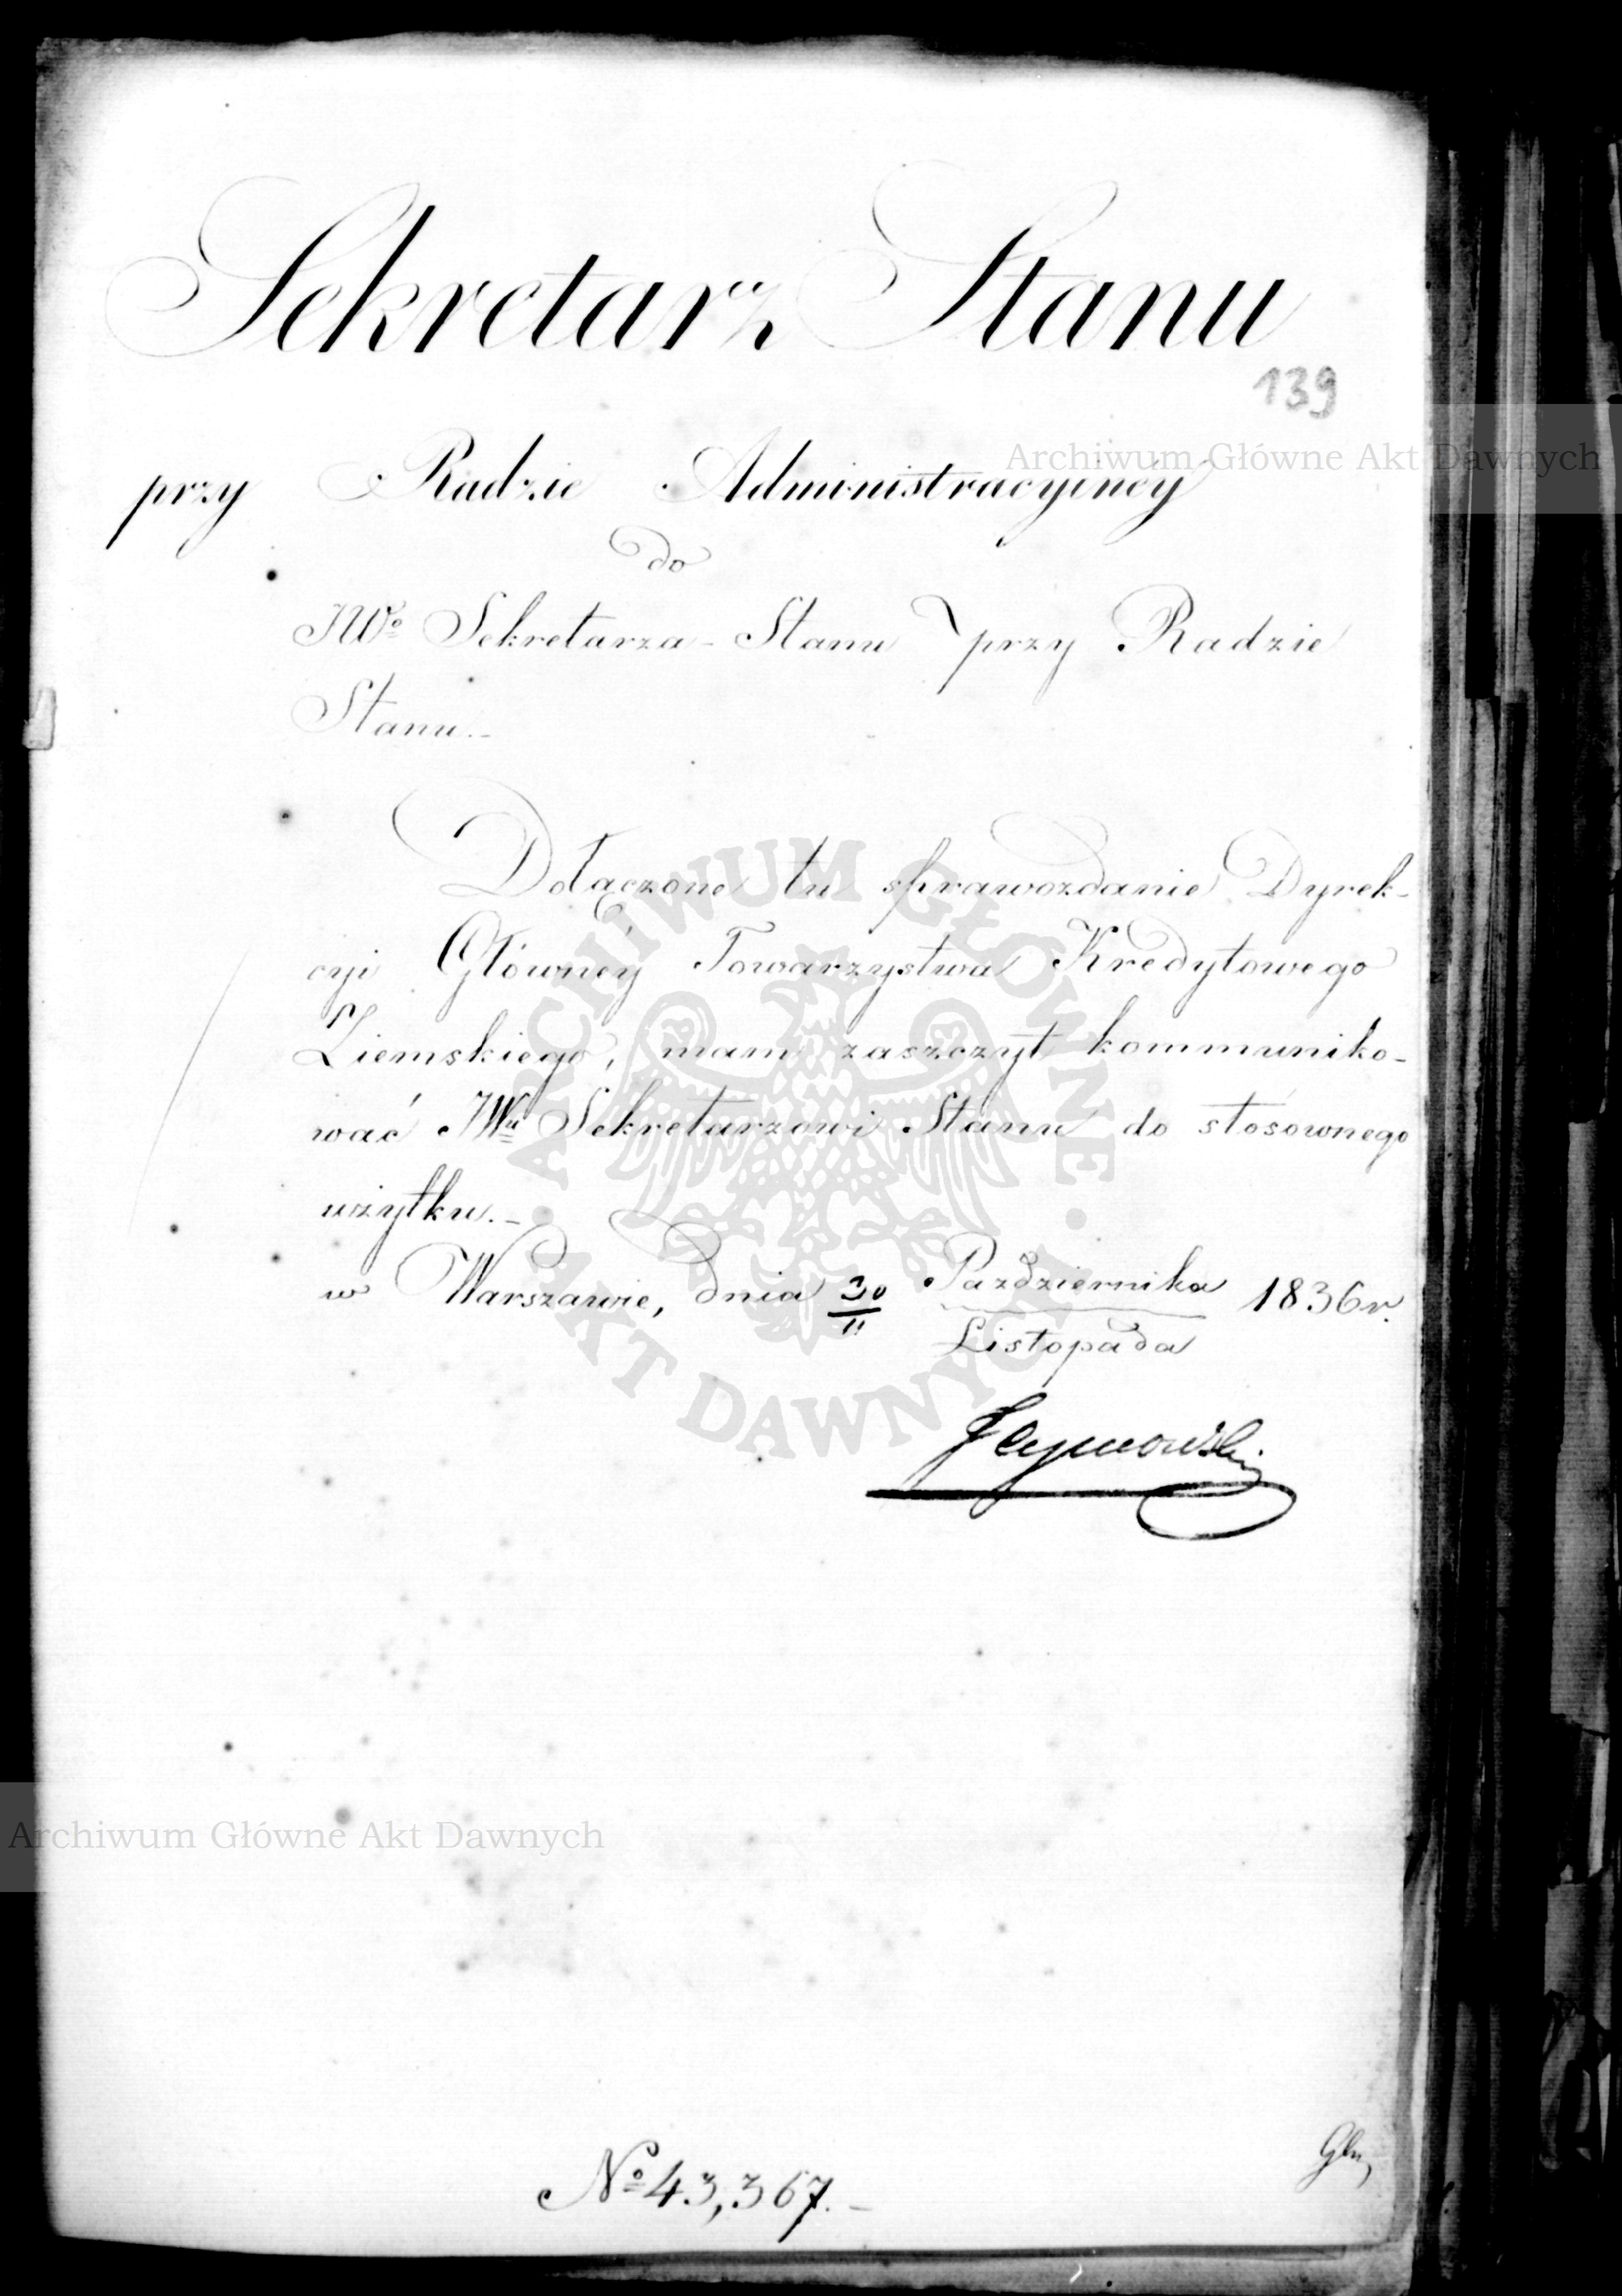 Sekretarz Stanu
139
Archiwum Główne Akt Dawnych
przy Radzie Administracyiney
do
JWo Sekretarza-Stanu przy Radzie
Stanu.-
Dołączone tu sprawozdanie Dyrek-
cyi Główney Towarzystwa Kredytowego
Ziemskiego, mam zaszczyt kommuniko-
wać JWu Sekretarzowi Stanu do stosownego
użytku.-
w Warszawie, dnia 30/11 Października/Listopada 1836 r.
ARCHIWUM GŁÓWNE
AKT DAWNYCH
Archiwum Główne Akt Dawnych
No 43,367.-